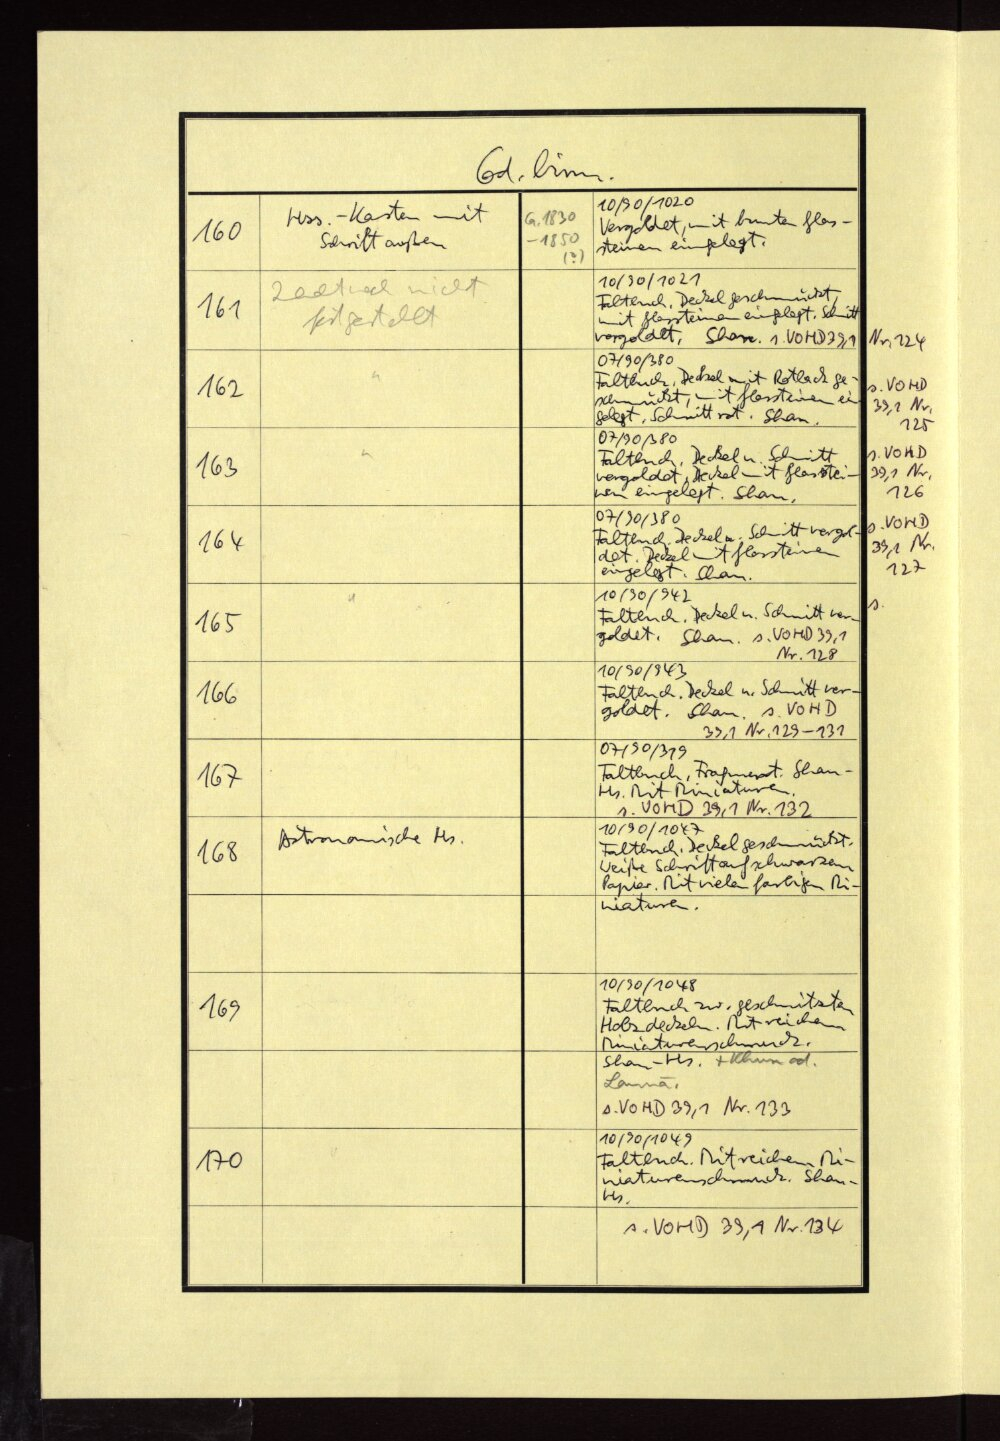 Cod. birm.
160
Hss.-Kasten mit
Schrift außen
Ca. 1830
-1850
(?)
10/90/1020
Vergoldet, mit bunten Glas-
steinen eingelegt.
161
noch nicht
festgestellt
10/90/1021
Faltbuch, Deckel geschmückt,
mit Glassteinen eingelegt. Schnitt
vergoldet. Shan. s. VOHD 39,1 Nr. 124
162
"
07/90/380
Faltbuch, Deckel mit Rotlack ge-
schmückt, mit Glassteinen ein
gelegt, Schnitt rot. Shan.
s. VOHD
39,1 Nr.
125
163
"
07/90/380
Faltbuch, Deckel u. Schnitt
vergoldet, Deckel mit Glasstei-
nen eingelegt. Shan.
s. VOHD
39,1 Nr.
126
164
07/90/380
Faltbuch. Deckel u. Schnitt vergol-
det. Deckel mit Glassteinen
eingelegt. Shan.
s. VOHD
39,1 Nr.
127
165
"
10/90/942
Faltbuch. Deckel u. Schnitt ver-
goldet. Shan. s. VOHD 39,1
Nr. 128
s.
166
10/90/943
Faltbuch. Deckel u. Schnitt ver-
goldet. Shan. s. VOHD
39,1 Nr. 129-131
167
07/90/379
Faltbuch, Fragment. Shan-
Hs. Mit Miniaturen.
s. VOHD 39,1 Nr. 132
168
Astronomische Hs.
10/90/1047
Faltbuch. Deckel geschmückt.
Weiße Schrift auf schwarzem
Papier. Mit vielen farbigen Mi-
niaturen.
169
10/90/1048
Faltbuch zw. geschnitzten
Holzdeckeln. Mit reichem
Miniaturenschmuck.
Shan-Hs. + Khün od.
Lanna.
s. VOHD 39,1 Nr. 133
170
10/90/1049
Faltbuch. Mit reichem Mi-
niaturenschmuck. Shan-
Hs.
s. VOHD 39,1 Nr. 134